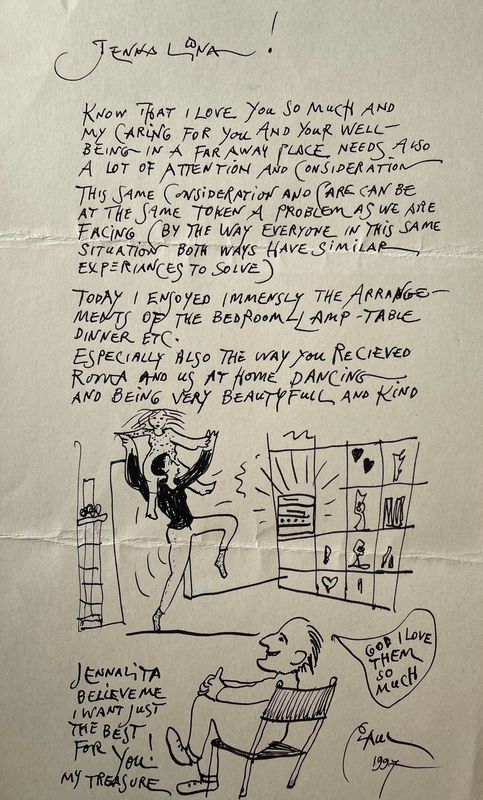 JENNA LINA !
KNOW THAT I LOVE YOU SO MUCH AND
MY CARING FOR YOU AND YOUR WELL-
BEING IN A FAR AWAY PLACE NEEDS ALSO
A LOT OF ATTENTION AND CONSIDERATION
THIS SAME CONSIDERATION AND CARE CAN BE
AT THE SAME TOKEN A PROBLEM AS WE ARE
FACING (BY THE WAY EVERYONE IN THIS SAME
SITUATION BOTH WAYS HAVE SIMILAR
EXPERIANCES TO SOLVE)
TODAY I ENJOYED IMMENSLY THE ARRANGE-
MENTS OF THE BEDROOM LAMP-TABLE
DINNER ETC.
ESPECIALLY ALSO THE WAY YOU RECIEVED
AND US AT HOME DANCING
AND BEING VERY BEAUTYFULL AND KIND
GOD I LOVE
THEM
SO
MUCH
JENNALITA
BELIEVE ME
I WANT JUST
THE BEST
FOR YOU!
MY TREASURE
1997